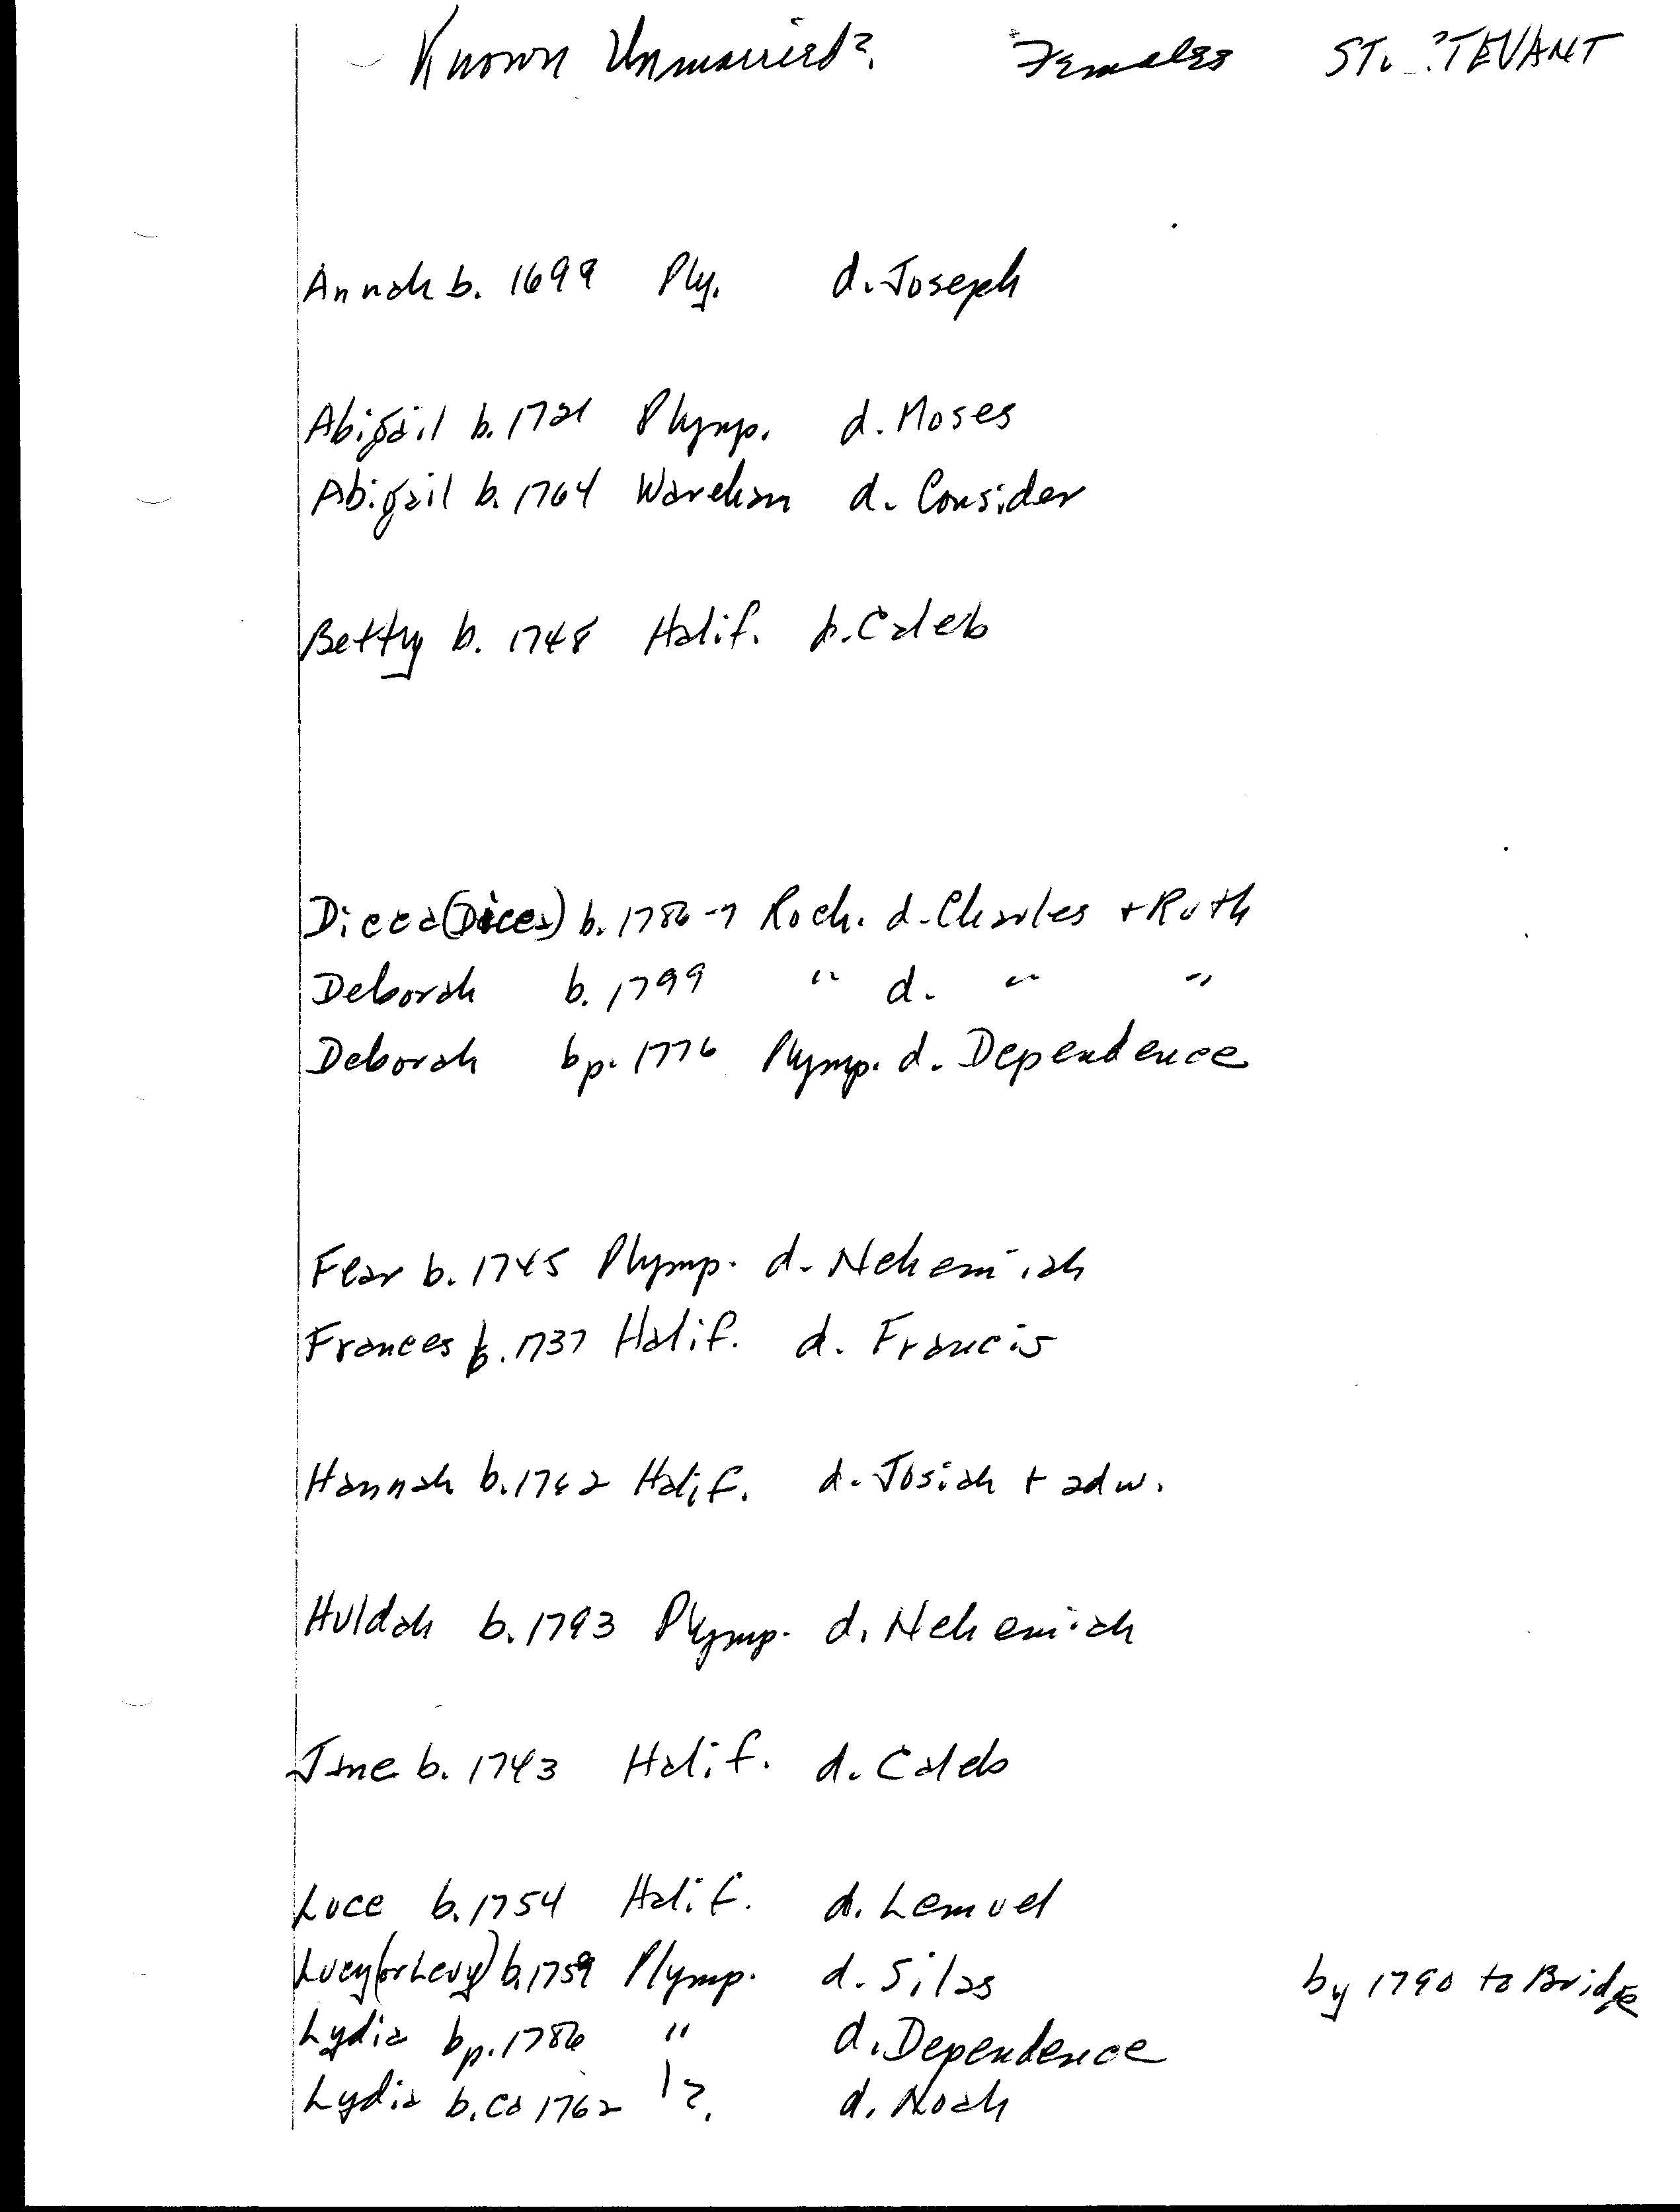 Known Unmarried? Females ST. ?TEVANT
Annah b. 1699 Ply. d. Joseph
Abigail b. 1721 Plymp. d. Moses
Abigail b. 1764 Wareham d. Consider
Betty b. 1748 Halif. d. Caleb
Dicea (Dices) b. 1786-7 Roch. d. Charles + Ruth
Deborah b. 1799 " d. " "
Deborah bp. 1776 Plymp. d. Dependence
Fear b. 1745 Plymp. d. Nehemiah
Frances b. 1737 Halif. d. Francis
Hannah b. 1762 Halif. d. Josiah + adw.
Huldah b. 1793 Plymp. d. Nehemiah
Jane b. 1743 Halif. d. Caleb
Luce b. 1754 Halif. d. Lemuel
Lucy (or Levy) b. 1759 Plymp. d. Silas by 1790 to Bridge
Lydia bp. 1786 " d. Dependence
Lydia b. ca 1762 ?. d. Noah